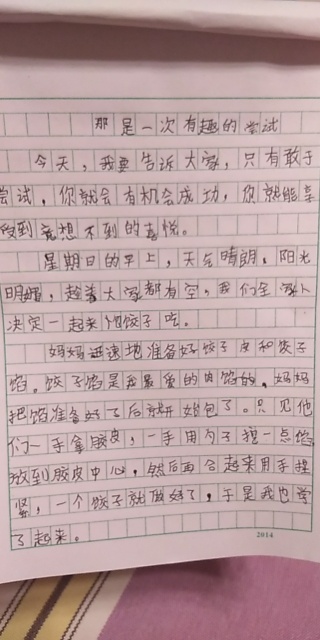 那是一次有趣的尝试
今天，我要告诉大家，只有敢于
尝试，你就会有机会成功，你就能享
受到意想不到的喜悦。
星期日的早上，天气晴朗，阳光
明媚，趁着大家都有空，我们全家人
决定一起来包饺子吃。
妈妈迅速地准备好饺子皮和饺子
馅。饺子馅是我最爱的肉馅的，妈妈
把馅准备好了后就开始包了。只见他
们一手拿胶皮，一手用勺子挖一点馅
放到胶皮中心，然后再合起来用手捏
紧，一个饺子就做好了，于是我也学
了起来。
2014